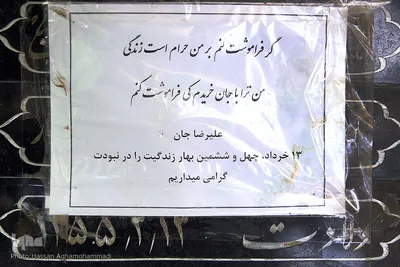 گر فراموشت کنم بر من حرام است زندگی
من ترا با جان خریدم کی فراموشت کنم
علیرضا جان
۱۳ خرداد، چهل و ششمین بهار زندگیت را در نبودت
گرامی میداریم
Photo:Hassan Aghamohammadi